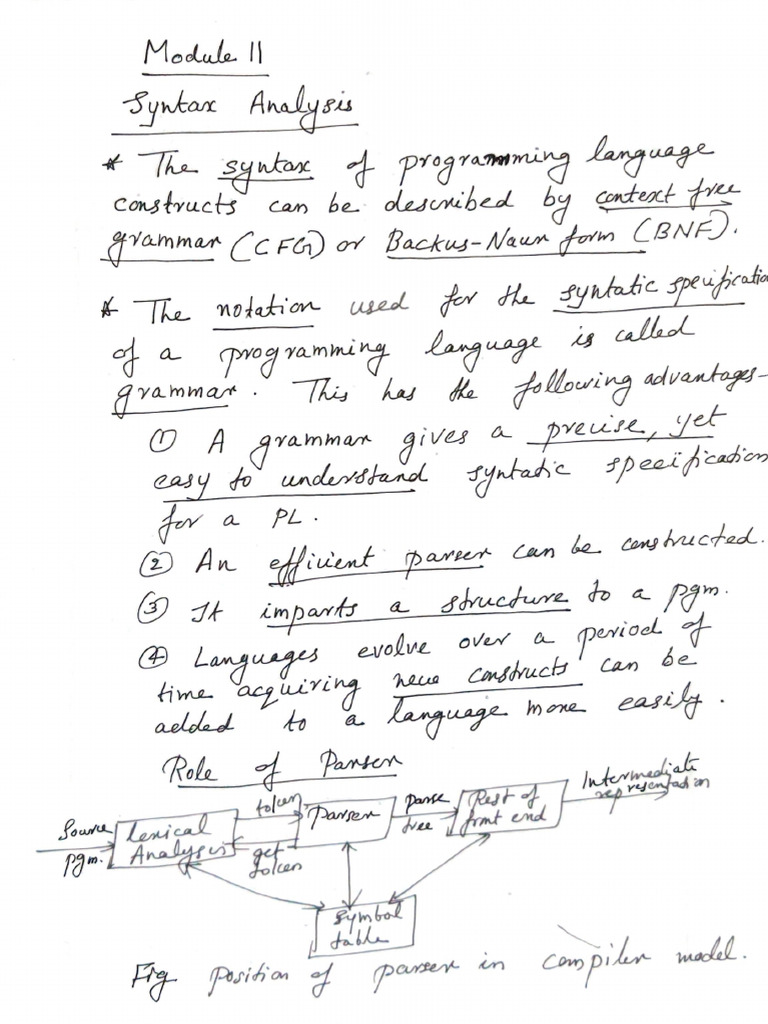 Module II
Syntax Analysis
* The syntax of programming language
constructs can be described by context free
grammar (CFG) or Backus-Naur form (BNF).
* The notation used for the syntatic specificatio
of a programming language is called
grammar. This has the following advantages-
① A grammar gives a precise, yet
easy to understand syntatic specification
for a PL.
② An efficient parser can be constructed.
③ It imparts a structure to a pgm.
④ Languages evolve over a period of
time acquiring new constructs can be
added to a language more easily.
Role of Parser
Source pgm.
Lexical Analysis
token
get token
Parser
parse tree
Rest of front end
Intermediate representation
Symbol table
Fig Position of parser in compiler model.